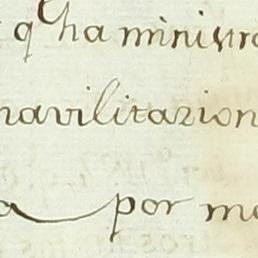 q ha ministra
havilitazion
a por ma